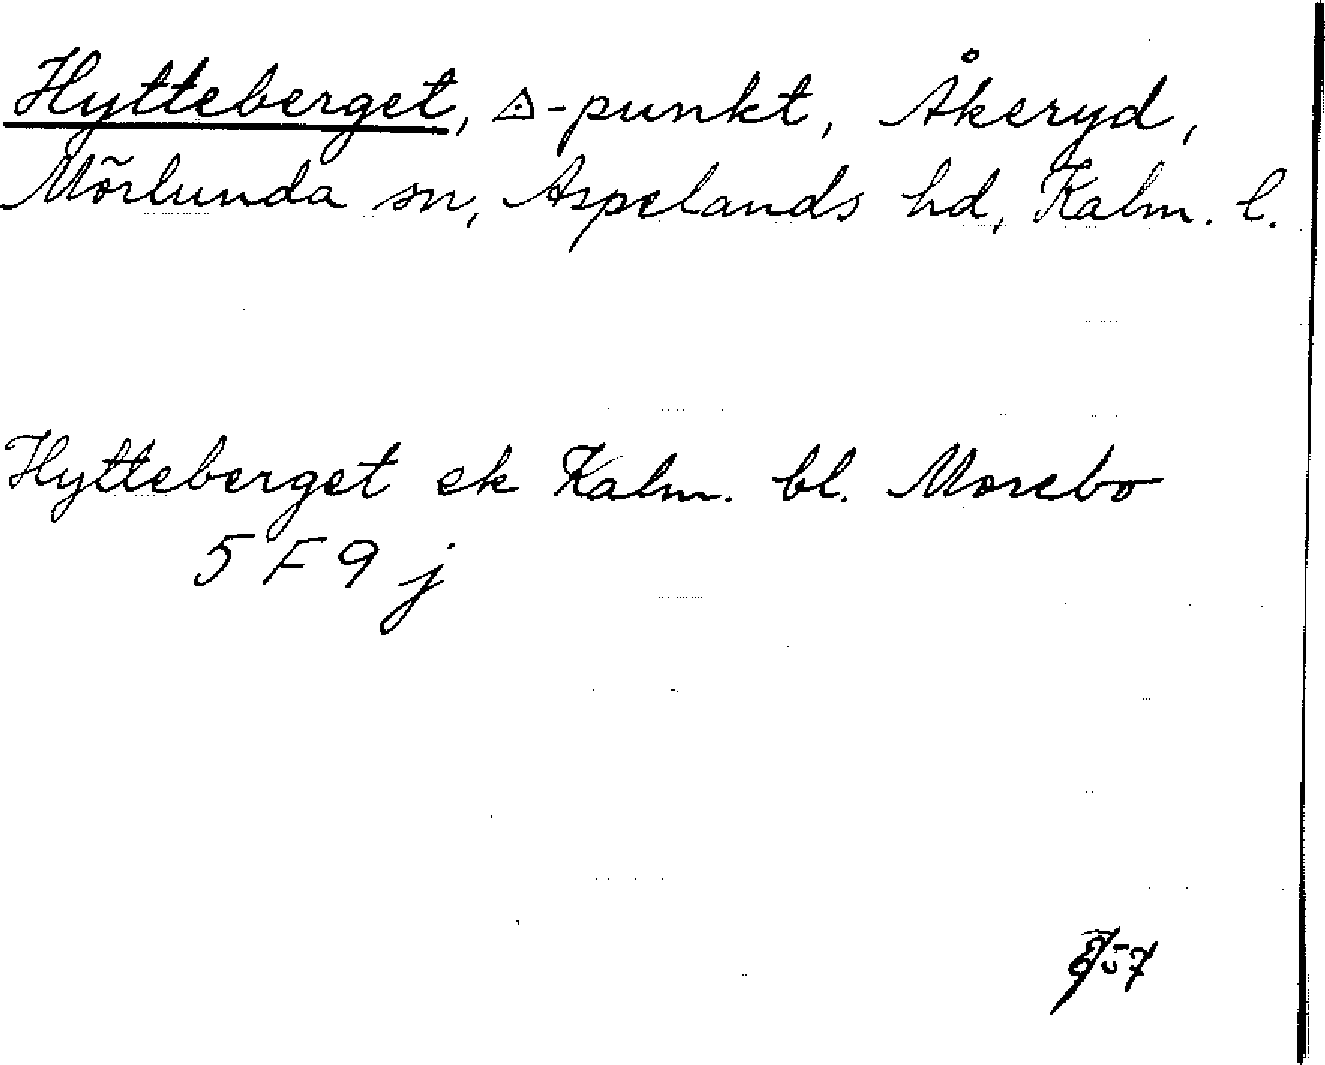 Hytteberget, △-punkt, Åkeryd,
Mörlunda sn, Aspelands hd, Kalm. l.
Hytteberget ek Kalm. bl. Morebo
5 F 9 j